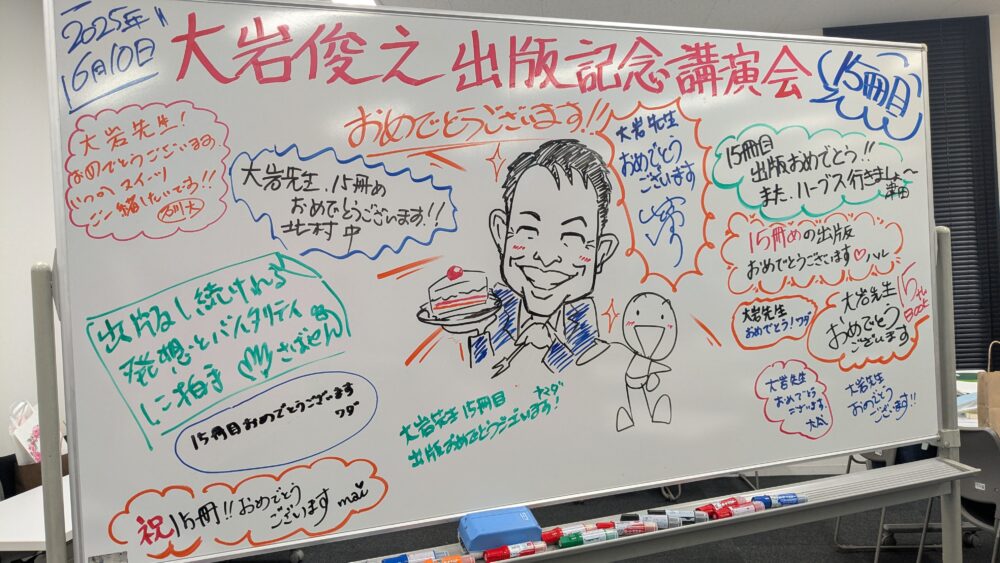 2025年
6月10日
大岩俊之 出版記念講演会
15冊目
おめでとうございます!!
大岩先生!
おめでとうございます。
いつか スイーツ
ご一緒したいです!!
大岩先生、15冊め
おめでとうございます!!
北村 中
大岩先生
おめでとう
ございます
15冊目
出版おめでとう!!
また、ハーブス行きましょ〜
津田
15冊めの出版
おめでとうございます♡ハル
大岩先生
おめでとう!ワダ
15th
BOOK
大岩先生
おめでとう
ございます
出版し続けれる
発想とバイタリティ
に拍手
さばせん
15冊目おめでとうございます
ワダ
大岩先生 15冊目
出版おめでとうございます!
大岩先生
おめでとう
ございます。
大岩先生
おめでとう
ございます!!
祝15冊!!おめでとう
ございます mai